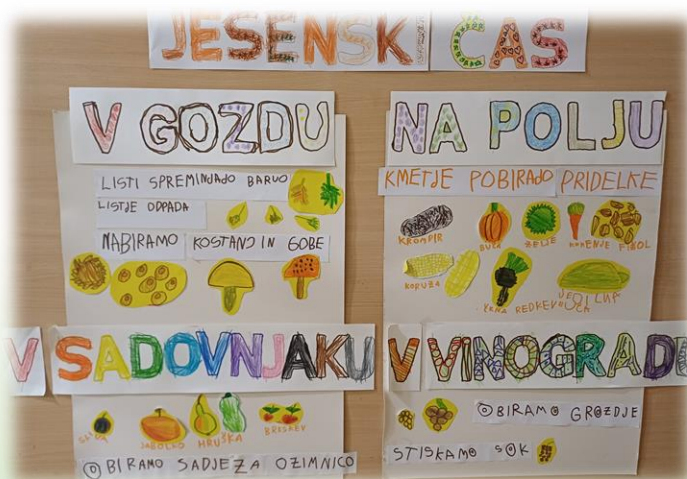 JESENSK ČAS
V GOZDU
LISTI SPREMINJAJO BARVO
LISTJE ODPADA
NABIRAMO KOSTANJ IN GOBE
NA POLJU
KMETJE POBIRAJO PRIDELKE
KROMPIR BUČA ZELJE KORENJE FIŽOL
KORUZA ČRNA REDKEV
V SADOVNJAKU
SLIVA JABOLKO HRUŠKA BRESKEV
OBIRAMO SADJE ZA OZIMNICO
V VINOGRADU
OBIRAMO GROZDJE
STISKAMO SOK